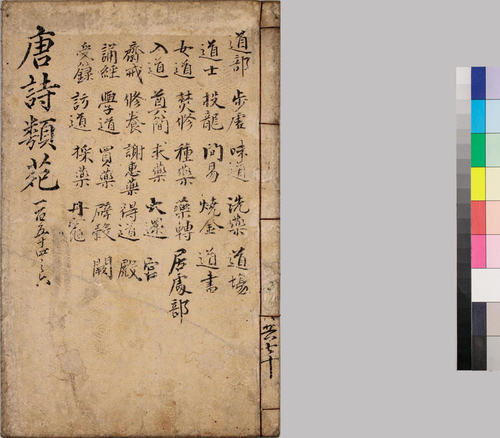 道部 步虛 味道 洗藥 道場
道士 投龍 問易 燒金 道書
女道 焚修 種藥 藥轉 居處部
入道 簡 求藥 大還 宮
齋戒 修養 謝惠藥 得道 殿
誦經 學道 買藥 辟穀 闕
受籙 訪道 採藥 丹竈
唐詩類苑 一百五十四之六
共七十